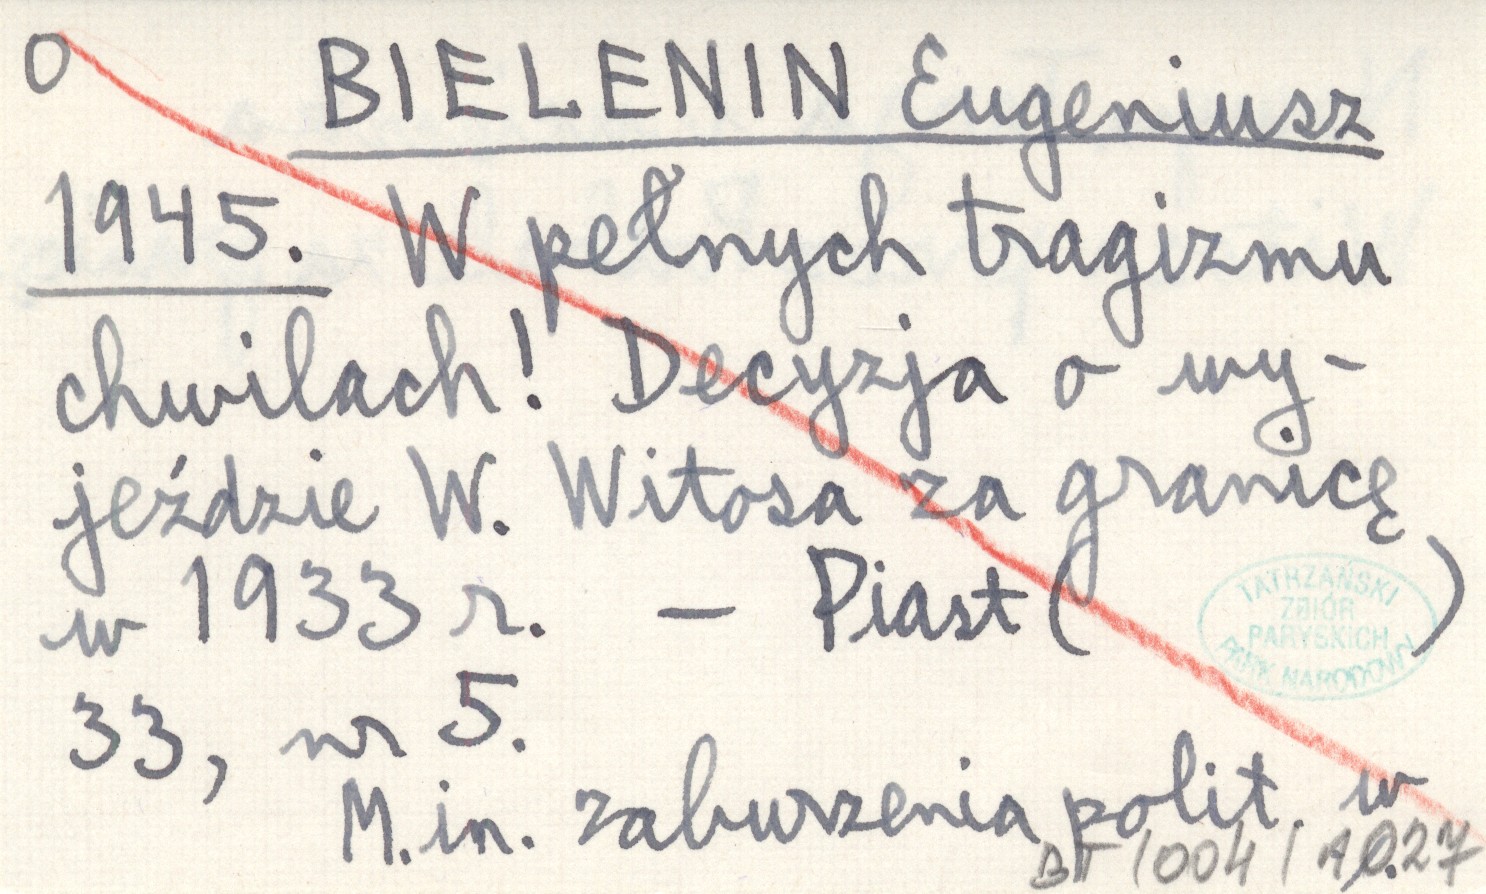 o BIELENIN Eugeniusz
1945. W pełnych tragizmu
chwilach! Decyzja o wy-
jeździe W. Witosa za granicę
w 1933 r. — Piast ( )
TATRZAŃSKI
ZBIÓR
PARYSKICH
PARK NARODOWY
33, nr 5.
M.in. zaburzenia polit. w
BT/004/A027